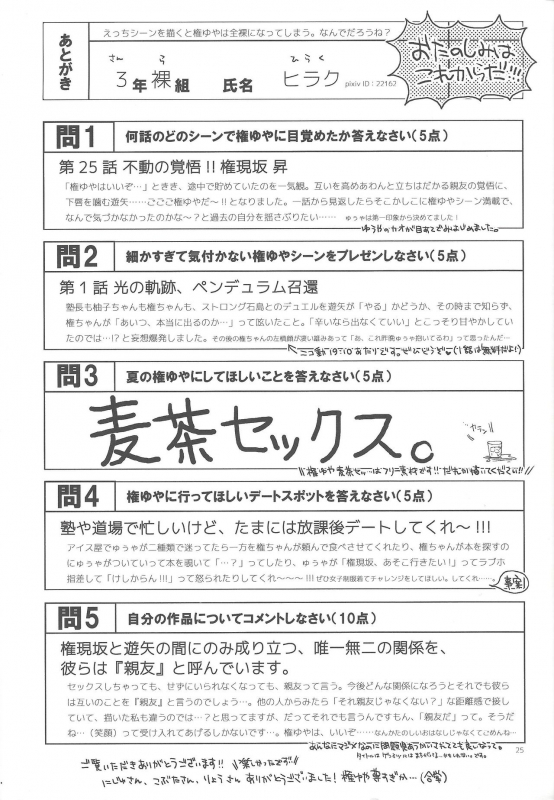 あとがき
えっちシーンを描くと権ゆやは全裸になってしまう。なんでだろうね?
さん ら ひらく
3年裸組 氏名 ヒラク pixiv ID:22162
おたのしみは
これからだ!!!
問1 何話のどのシーンで権ゆやに目覚めたか答えなさい(5点)
第25話 不動の覚悟!!権現坂 昇
「権ゆやはいいぞ…」ときき、途中で貯めていたのを一気観。互いを高めあわんと立ちはだかる親友の覚悟に、
下唇を噛む遊矢……ごごご権ゆやだ~!!となりました。一話から見返したらそこかしこに権ゆやシーン満載で、
なんで気づかなかったのかな~?と過去の自分を揺さぶりたい…… ゆぅやは第一印象から決めてました!
ゆうやのカオが目あてでみはじめました。
問2 細かすぎて気付かない権ゆやシーンをプレゼンしなさい(5点)
第1話 光の軌跡、ペンデュラム召還
塾長も柚子ちゃんも権ちゃんも、ストロング石島とのデュエルを遊矢が「やる」かどうか、その時まで知らず、
権ちゃんが「あいつ、本当に出るのか…」って呟いたこと。「辛いなら出なくていい」とこっそり甘やかしてい
たのでは…!?と妄想爆発しました。その後の権ちゃんの左横顔が凄い雄みあって「あ、これ昨晩ゅぅゃ抱いてるわ」って思ったんだ…
ニコ動19:10あたりです。ぜひどうぞ。(1話は無料だよ!)
問3 夏の権ゆやにしてほしいことを答えなさい(5点)
麦茶セックス。
カラン
権ゆや麦茶セッ…はフリー素材です!!だれか描いてください!!
問4 権ゆやに行ってほしいデートスポットを答えなさい(5点)
塾や道場で忙しいけど、たまには放課後デートしてくれ~!!!
アイス屋でゅぅゃが二種類で迷ってたら一方を権ちゃんが頼んで食べさせてくれたり、権ちゃんが本を探すの
にゅぅゃがついていって本を覗いて「…?」ってしたり、ゅぅゃが「権現坂、あそこ行きたい!」ってラブホ
指差して「けしからん!!!」って怒られたりしてくれ~~~!!!ぜひ女子制服着てチャレンジをしてほしい。してくれ……。
問5 自分の作品についてコメントしなさい(10点)
権現坂と遊矢の間にのみ成り立つ、唯一無二の関係を、
彼らは『親友』と呼んでいます。
セックスしちゃっても、せずにいられなくなっても、親友って言う。今後どんな関係になろうとそれでも彼ら
は互いのことを『親友』と言うのでしょう…。他の人からみたら「それ親友じゃなくない?」な距離感で接し
ていて、描いた私も違うのでは…?と思ってますが、だってそれでも言うんですもん、「親友だ」って。そうだ
ね…(笑顔)って受け入れてあげるしかないです…。権ゆやは、いいぞ……なんかたのしいおはなしじゃなくてごめんね…
25
ご覧いただきありがとうございます!! 楽しかったです!!
にしゅさん、こぶたさん、りょうさん ありがとうございました!権ゆや尊すぎか…(合掌)